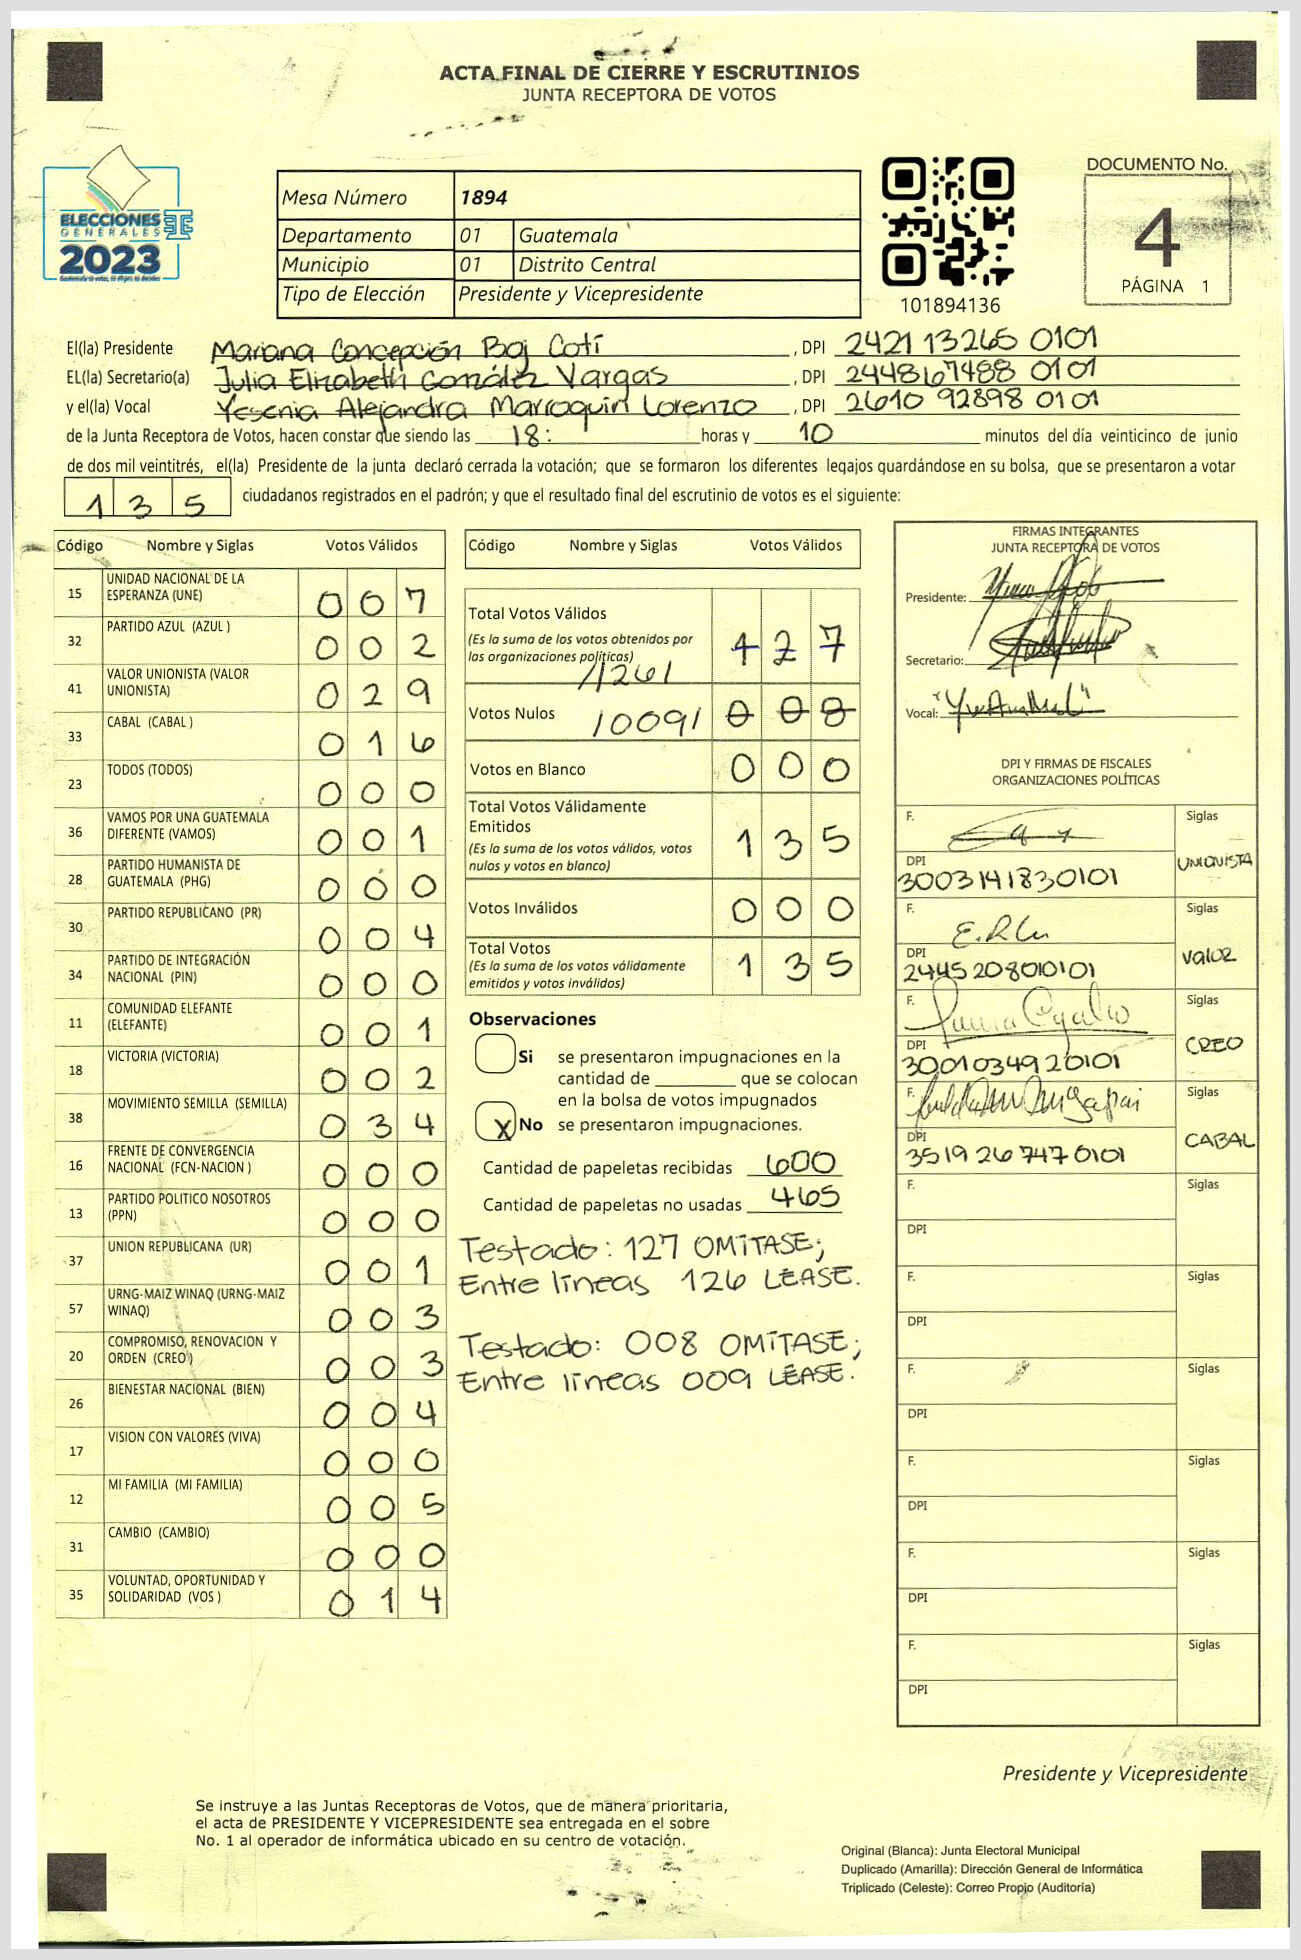 ACTA FINAL DE CIERRE Y ESCRUTINIOS
JUNTA RECEPTORA DE VOTOS
ELECCIONES
GENERALES
2023
Mesa Número 1894
Departamento 01 Guatemala
Municipio 01 Distrito Central
Tipo de Elección Presidente y Vicepresidente
101894136
DOCUMENTO No.
4
PÁGINA 1
El(la) Presidente Mariana Concepción Boj Cotí , DPI 2421 13265 0101
EL(la) Secretario(a) Julia Elizabeth González Vargas , DPI 244867488 0101
y el(la) Vocal Yesenia Alejandra Marroquin Lorenzo , DPI 2610 92898 0101
de la Junta Receptora de Votos, hacen constar que siendo las 18: horas y 10 minutos del día veinticinco de junio
de dos mil veintitrés, el(la) Presidente de la junta declaró cerrada la votación; que se formaron los diferentes legajos guardándose en su bolsa, que se presentaron a votar
135 ciudadanos registrados en el padrón; y que el resultado final del escrutinio de votos es el siguiente:
Código Nombre y Siglas Votos Válidos
15 UNIDAD NACIONAL DE LA
ESPERANZA (UNE) 007
32 PARTIDO AZUL (AZUL ) 002
41 VALOR UNIONISTA (VALOR
UNIONISTA) 029
33 CABAL (CABAL ) 016
23 TODOS (TODOS) 000
36 VAMOS POR UNA GUATEMALA
DIFERENTE (VAMOS) 001
28 PARTIDO HUMANISTA DE
GUATEMALA (PHG) 000
30 PARTIDO REPUBLICANO (PR) 004
34 PARTIDO DE INTEGRACIÓN
NACIONAL (PIN) 000
11 COMUNIDAD ELEFANTE
(ELEFANTE) 001
18 VICTORIA (VICTORIA) 002
38 MOVIMIENTO SEMILLA (SEMILLA) 034
16 FRENTE DE CONVERGENCIA
NACIONAL (FCN-NACION ) 000
13 PARTIDO POLITICO NOSOTROS
(PPN) 000
37 UNION REPUBLICANA (UR) 001
57 URNG-MAIZ WINAQ (URNG-MAIZ
WINAQ) 003
20 COMPROMISO, RENOVACION Y
ORDEN (CREO ) 003
26 BIENESTAR NACIONAL (BIEN) 004
17 VISION CON VALORES (VIVA) 000
12 MI FAMILIA (MI FAMILIA) 005
31 CAMBIO (CAMBIO) 000
35 VOLUNTAD, OPORTUNIDAD Y
SOLIDARIDAD (VOS ) 014
Código Nombre y Siglas Votos Válidos
Total Votos Válidos 127
(Es la suma de los votos obtenidos por
las organizaciones políticas)
/126/
Votos Nulos /009/ 008
Votos en Blanco 000
Total Votos Válidamente
Emitidos 135
(Es la suma de los votos válidos, votos
nulos y votos en blanco)
Votos Inválidos 000
Total Votos 135
(Es la suma de los votos válidamente
emitidos y votos inválidos)
Observaciones
Si se presentaron impugnaciones en la
cantidad de ________ que se colocan
en la bolsa de votos impugnados
X No se presentaron impugnaciones.
Cantidad de papeletas recibidas 600
Cantidad de papeletas no usadas 465
Testado: 127 OMÍTASE;
Entre líneas 126 LÉASE.
Testado: 008 OMÍTASE;
Entre líneas 009 LÉASE.
FIRMAS INTEGRANTES
JUNTA RECEPTORA DE VOTOS
Presidente:
Secretario:
Vocal:
DPI Y FIRMAS DE FISCALES
ORGANIZACIONES POLÍTICAS
F. Siglas
DPI 3003141830101 UNIONISTA
F. Siglas
DPI 2445208010101 Valor
F. Siglas
DPI 3001034920101 CREO
F. Siglas
DPI 3519 26747 0101 CABAL
F. Siglas
DPI
F. Siglas
DPI
F. Siglas
DPI
F. Siglas
DPI
F. Siglas
DPI
F. Siglas
DPI
Presidente y Vicepresidente
Se instruye a las Juntas Receptoras de Votos, que de manera prioritaria,
el acta de PRESIDENTE Y VICEPRESIDENTE sea entregada en el sobre
No. 1 al operador de informática ubicado en su centro de votación.
Original (Blanca): Junta Electoral Municipal
Duplicado (Amarilla): Dirección General de Informática
Triplicado (Celeste): Correo Propio (Auditoría)